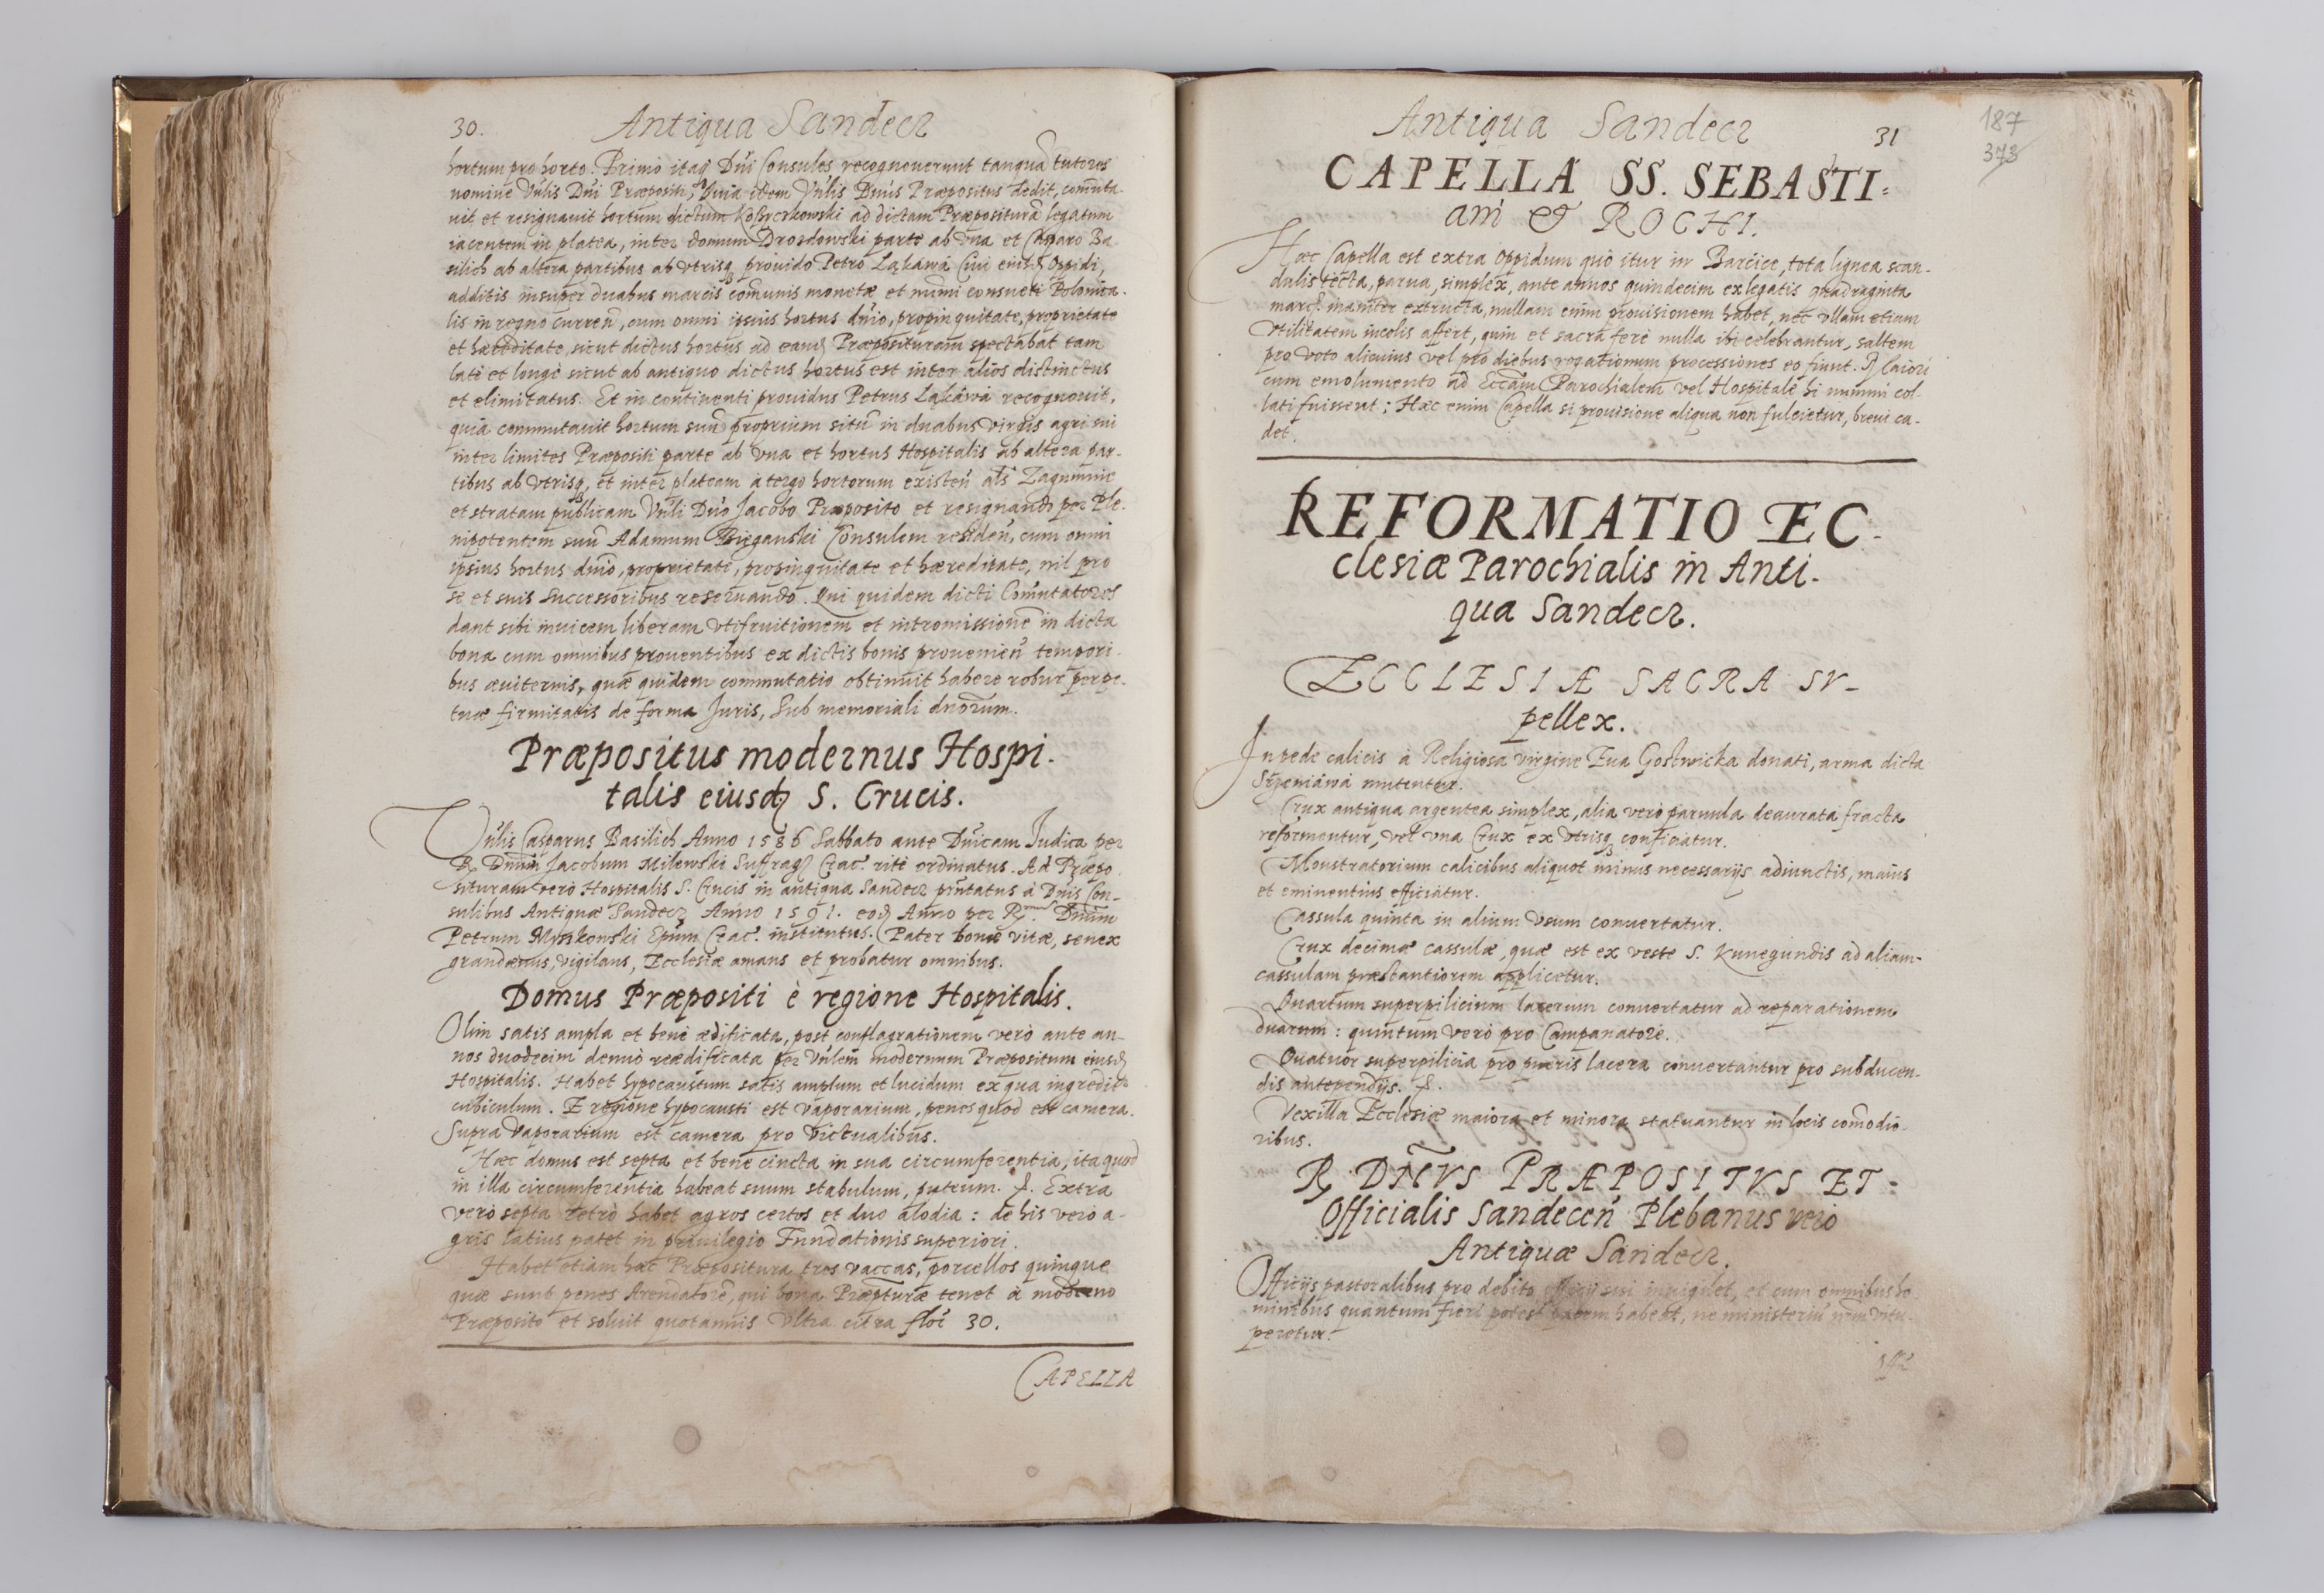 30. Antiqua Sandecz
hortum pro horto. Primò itaq Dñi Consules recognouerunt tanquã tutores
nomine Vñlis Dñi Præpositi, Quia idem Vñlis Dnũs Præpositus dedit, comuta-
uit et resignauit hortum dictum ad dictam Præpositurã legatum
iacentem in platea, inter domum Drozdowski parte ab vna et Casparo Ba-
silich ab altera partibus ab vtrisq, prouido Petro Ląkáwá Ciui eiusd Oppidi,
additis insuper duabus marcis comunis monetæ et numi consueti Polonica-
lis in regno curren, cum omni ipsius hortus dnio, propinquitate, proprietate
et hæreditate, sicut dictus hortus ad eand Præposituram spectabat tam
latè et longè sicut ab antiquo dictus hortus est inter alios distinctus
et elimitatus. Et in continenti prouidus Petrus Ląkáwá recognouit,
quia commutauit hortum suũ proprium sitũ in duabus virgis agri sui
inter limites Præpositi parte ab vna et hortus Hospitalis ab altera par-
tibus ab vtrisq, et inter plateam à tergo hortorum existeñ als Zagumnie
et stratam publicam Vñli Dño Jacobo Præposito et resignando per Ple-
nipotentem suũ Adamum Biegański Consulem residen, cum omni
ipsius hortus dnio, proprietate, propinquitate et hæreditate, nil pro
se et suis successoribus reseruando. Qui quidem dicti Comutatores
dant sibi inuicem liberam vtifruitionem et intromissionẽ in dicta
bona cum omnibus prouentibus ex dictis bonis prouenieñ tempori-
bus æuiternis, quæ quidem commutatio obtinuit habere robur perpe-
tuæ firmitatis de forma Juris, Sub memoriali dnorum.
Præpositus modernus Hospi-
talis eiusd S. Crucis.
Vñlis Casparus Basilich Anno 1586 Sabbato ante Dnicam Judica per
R. Dnum Jacobum Milewski Suffrag Crac. ritè ordinatus. Ad Præpo-
situram verò Hospitalis S. Crucis in antiqua Sandecz pñtatus à Dnis Con-
sulibus Antiquæ Sandecz Anno 1591. eod Anno per R. Dnum
Petrum Myszkowski Epum Crac. institutus. Pater bonæ vitæ, senex
grandæuus, vigilans, Ecclesiæ amans et probatur omnibus.
Domus Præpositi è regione Hospitalis.
Olim satis ampla et benè ædificata, post conflagrationem verò ante an-
nos duodecim denuò reædificata per Vñlem modernum Præpositum eiusd
Hospitalis. Habet hypocaustum satis amplum et lucidum ex qua ingredit
cubiculum. E regione hypocausti est vaporarium, penes quod est camera.
Supra vaporarium est camera pro victualibus.
Hæc domus est septa et bene cincta in sua circumferentia, ita quod
in illa circumferentia habeat suum stabulum, puteum. &. Extra
verò septa retrò habet agros certos et duo alodia: de his verò a-
gris latius patet in priuilegio Fundationis superiori.
Habet etiam hæc Præpositura tres vaccas, porcellos quinque
quæ sunt penes Arendatorẽ, qui bona Præpturæ tenet à moderno
Præposito et soluit quotannis vltra citra flor 30.
CAPELLA
Antiqua Sandecz 31
187
373
CAPELLA SS. SEBASTI-
ani & ROCHI.
Hæc Capella est extra Oppidum quò itur in Barcice, tota lignea scan-
dulis tecta, parua, simplex, ante annos quindecim ex legatis quadraginta
marcs. inaniter extructa, nullam enim prouisionem habet, nec vllam etiam
vtilitatem incolis affert, quin et sacra ferè nulla ibi celebrantur, saltem
pro voto alicuius vel pro diebus rogationum processiones eo fiunt.
cum emolumento ad Eccam Parochialem vel Hospitale hi nummi col-
lati fuissent: Hæc enim Capella si prouisione aliqua non fulcietur, breui ca-
det.
REFORMATIO EC-
clesiæ Parochialis in Anti-
qua Sandecz.
ECCLESIÆ SACRA SV-
pellex.
In pede calicis à Religiosa virgine Eua Gostwicka donati, arma dicta
mutentur.
Crux antiqua argentea simplex, alia verò paruula deaurata fracta
reformentur, vel vna Crux ex vtrisq conficiatur.
Monstratorium calicibus aliquot minus necessarijs adiunctis, maius
et eminentius efficiatur.
Cassula quinta in alium vsum conuertatur.
Crux decimæ cassulæ, quæ est ex veste S. Kunegundis ad aliam
cassulam præstantiorem applicetur.
Quartum superpilicium lacerum conuertatur ad reparationem
duarum: quintum verò pro Campanatore.
Quatuor superpilicia pro pueris lacera conuertantur pro subducen-
dis antependijs. &.
Vexilla Ecclesiæ maiora et minora statuantur in locis comodio-
ribus.
R. DÑVS PRÆPOSITVS ET-
Officialis Sandeceñ Plebanus verò
Antiquæ Sandecz.
Officijs pastoralibus pro debito officij sui inuigilet, et cum omnibus ho-
minibus quantum fieri potest pacem habeat, ne ministeriũ nrm vitu-
peretur.
Offi